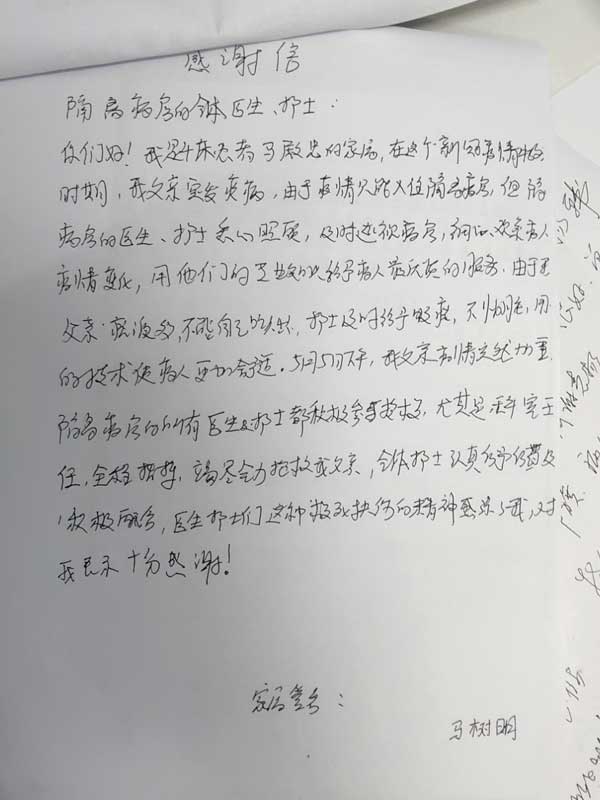 感谢信
隔离病房的全体医生、护士：
你们好！我是4床患者马殿忠的家属，在这个新冠疫情
时期，我父亲突发疾病，由于疫情只能入住隔离病房，但隔
病房的医生、护士悉心照顾，及时巡视病房，细心观察病人
病情变化，用他们的 给予病人最优质的服务。由于
父亲痰液多，不能自己咳出，护士及时给予吸痰，不怕脏，用
的技术使病人更加舒适。5月5日下午，我父亲病情突然加重
隔离病房的所有医生及护士都积极参与抢救，尤其是 主
任，全程指挥，竭尽全力抢救我父亲，全体护士认真
积极配合，医生护士们这种 的精神感染了我，对
我表示十分感谢！
家属签名：
马树明